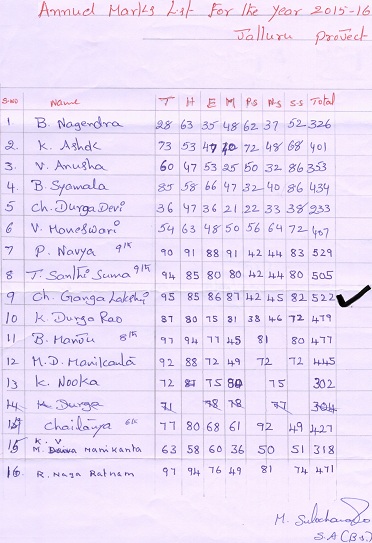 Annual Marks List For the year 2015-16
Jalluru project
S.NO Name T H E M P.S N.S S.S Total
1 B. Nagendra 28 63 35 48 62 37 52 326
2. K. Ashok 73 53 47 70 72 48 68 401
3. V. Anusha 60 47 53 25 50 32 86 353
4. B. Syamala 85 58 66 47 32 40 86 434
5 Ch. Durga Devi 36 47 36 21 22 33 38 233
6 V. Maneswari 54 63 48 50 56 64 72 407
7 P. Navya 90 91 88 91 42 44 83 529
8 T. Santhi Suma 94 85 80 80 42 44 80 505
9 Ch. Ganga Lakshi 95 85 86 87 42 45 82 522
10 K. Durga Rao 87 80 75 81 38 46 72 479
11 B. Mandu 97 94 77 45 81 80 477
12 M.D. Manikanta 92 88 72 49 72 72 445
13 K. Nooka 72 87 75 80 75 302
14 K. Durga 71 78 78 77 304
Chaitanya 77 80 68 61 92 49 427
K. V
15 M. Manikanta 63 58 60 36 50 51 318
16 R. Naga Ratnam 97 94 76 49 81 74 471
M.
S.A